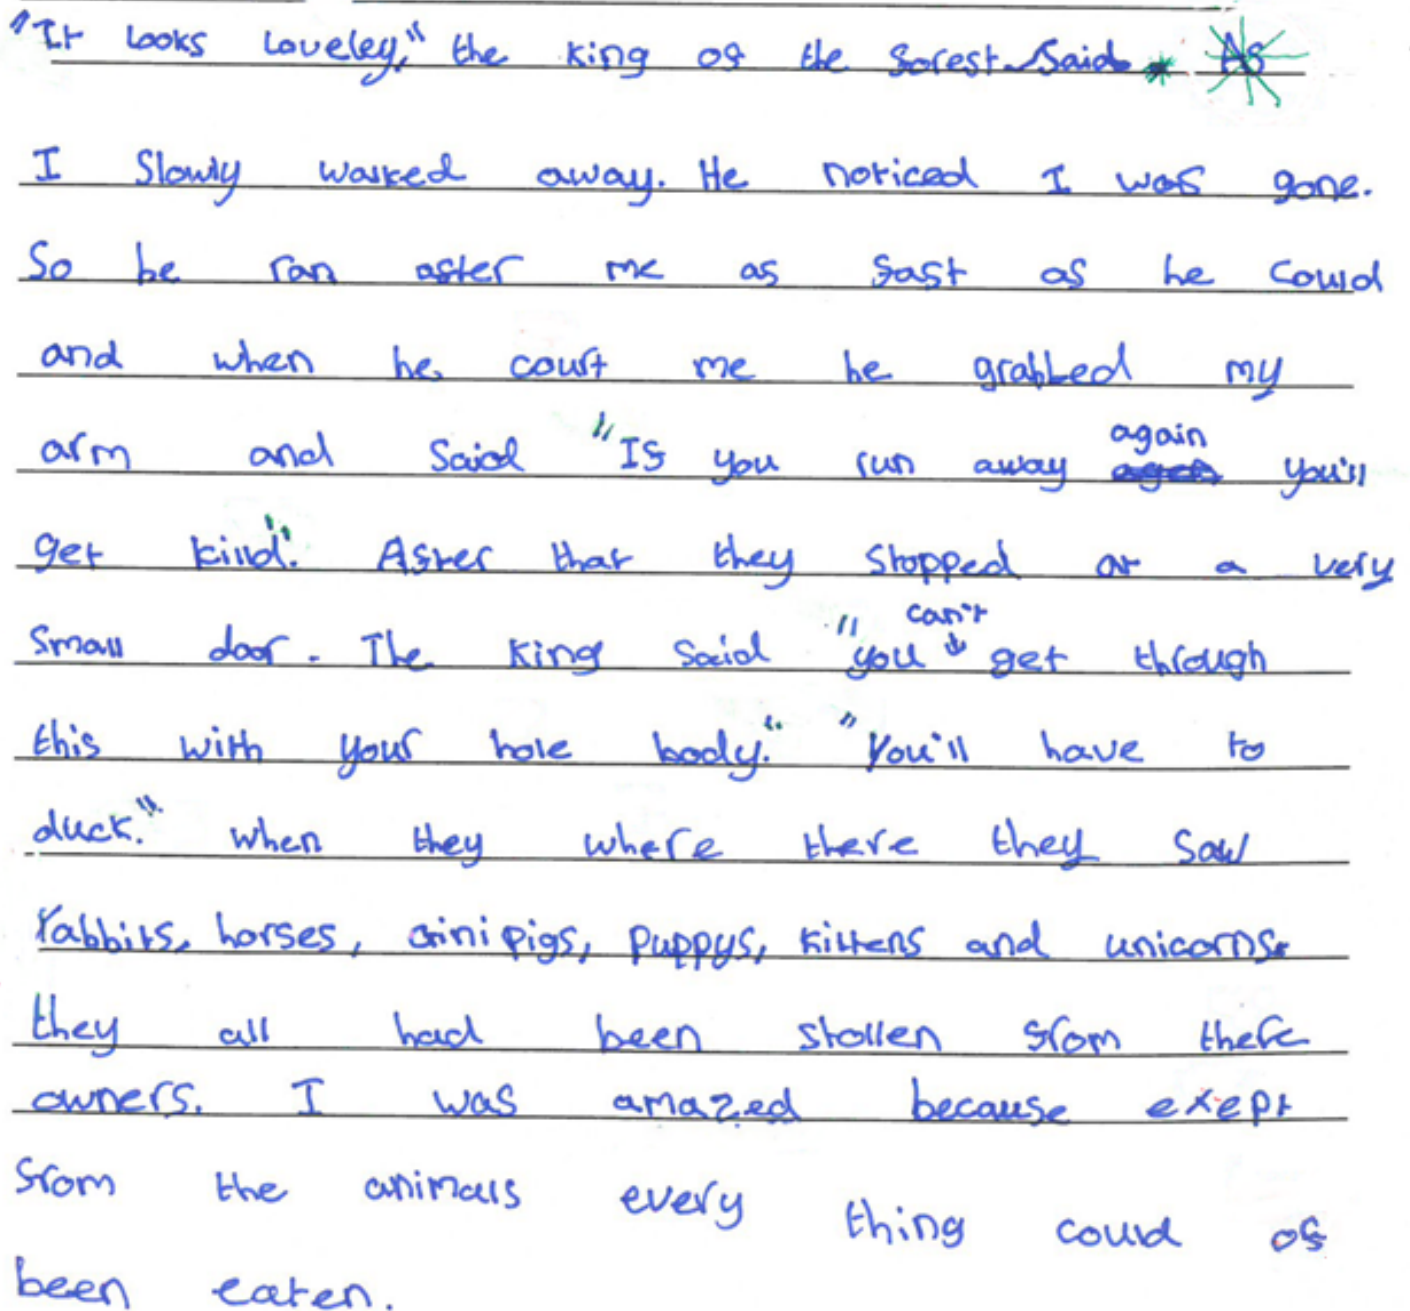 "It looks loveley," the king of the forest said. As
I slowly walked away. He noticed I was gone.
So he ran after me as fast as he could
and when he court me he grabbed my
arm and said "If you run away again you'll
get killd". After that they stopped at a very
small door. The king said "you can't get through
this with your hole body." "You'll have to
duck." when they where there they saw
rabbits, horses, minipigs, puppys, kittens and unicorns.
they all had been stollen from there
owners. I was amazed because exept
from the animals every thing could of
been eaten.